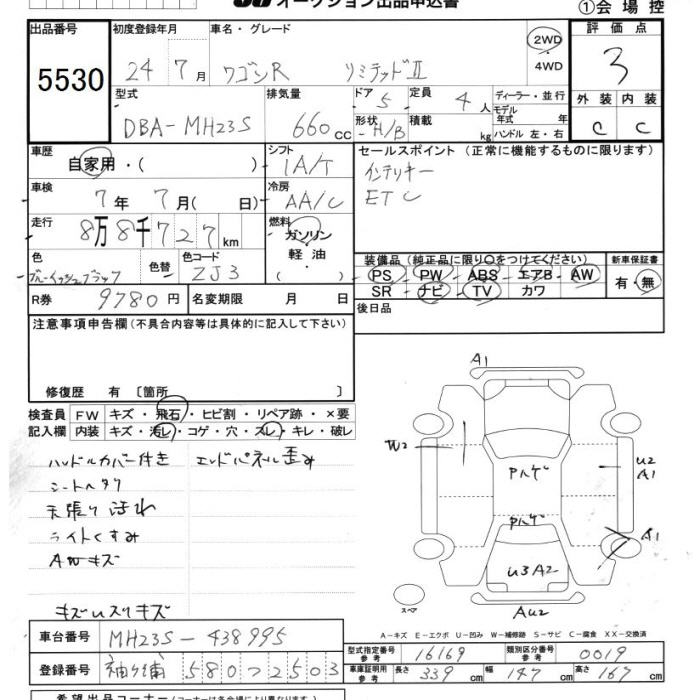 オークション出品申込書
①会場控
出品番号
5530
初度登録年月
24 7月
車名・グレード
ワゴンR リミテッドII
2WD
4WD
評価点
3
外装 内装
C C
型式
DBA-MH23S
排気量
660cc
ドア
5
形状
H/B
定員
4人
積載
kg
ディーラー・並行
モデル年式 年
ハンドル 左・右
車歴
自家用・( )
車検
7年 7月( 日)
走行
8万8千727km
色
色替
色コード
ZJ3
シフト
IA/T
冷房
AA/C
燃料
ガソリン
軽油・
( )
セールスポイント(正常に機能するものに限ります)
インテリキー
ETC
装備品(純正品に限り○をつけてください)
PS PW ABS エアB AW
SR ナビ TV カワ
新車保証書
有・無
R券
9780円
名変期限 月 日
後日品
注意事項申告欄(不具合内容等は具体的に記入して下さい)
修復歴 有 〔箇所 〕
検査員記入欄
FW キズ・飛石・ヒビ割・リペア跡・×要
内装 キズ・汚レ・コゲ・穴・スレ・キレ・破レ
ハンドルカバー付き エンドパネル歪み
シートヘタリ
天張り汚れ
ライトくすみ
AWキズ
A1
W2
U2
A1
Pハゲ
Pハゲ
A1
U3A2
AU2
スペア
A-キズ E-エクボ U-凹み W-補修跡 S-サビ C-腐食 XX-交換済
車台番号
MH23S-438995
登録番号
袖ヶ浦 580つ2503
型式指定番号参考
16169
類別区分番号参考
0019
車庫証明用参考
長さ 339cm 幅 147cm 高さ 167cm
希望出品コーナー(コーナーは各会場により異なります)